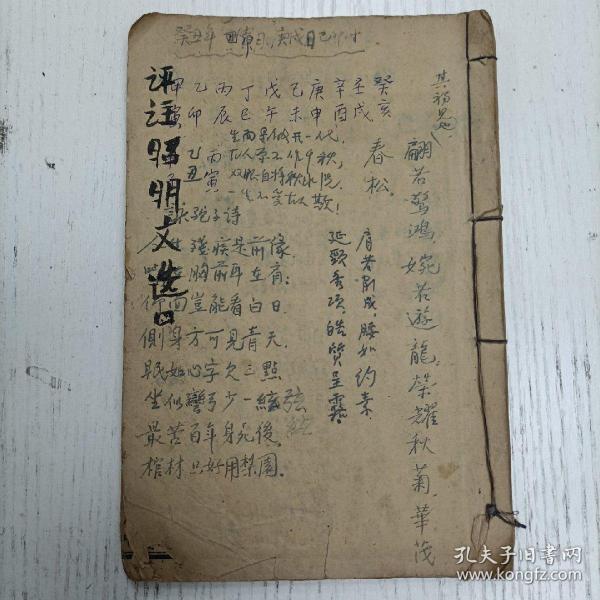 評注昭明文选
癸丑年
癸亥
壬戌
辛酉
庚申
己未
戊午
丁巳
丙辰
乙卯
甲寅
丙寅
乙丑
其初見也
翩若驚鴻婉若遊龍榮耀秋菊華茂
春松
肩若削成腰如約素
延頸秀項皓質呈露
駝子詩
殘疾是前像
胸前耳在肩
仰面豈能看白日
側身方可見青天
眠如心字欠三點
坐似彎弓少一絃弦
最苦百年身死後
棺材只好用梨園
孔夫子旧书网
www.kongfz.com